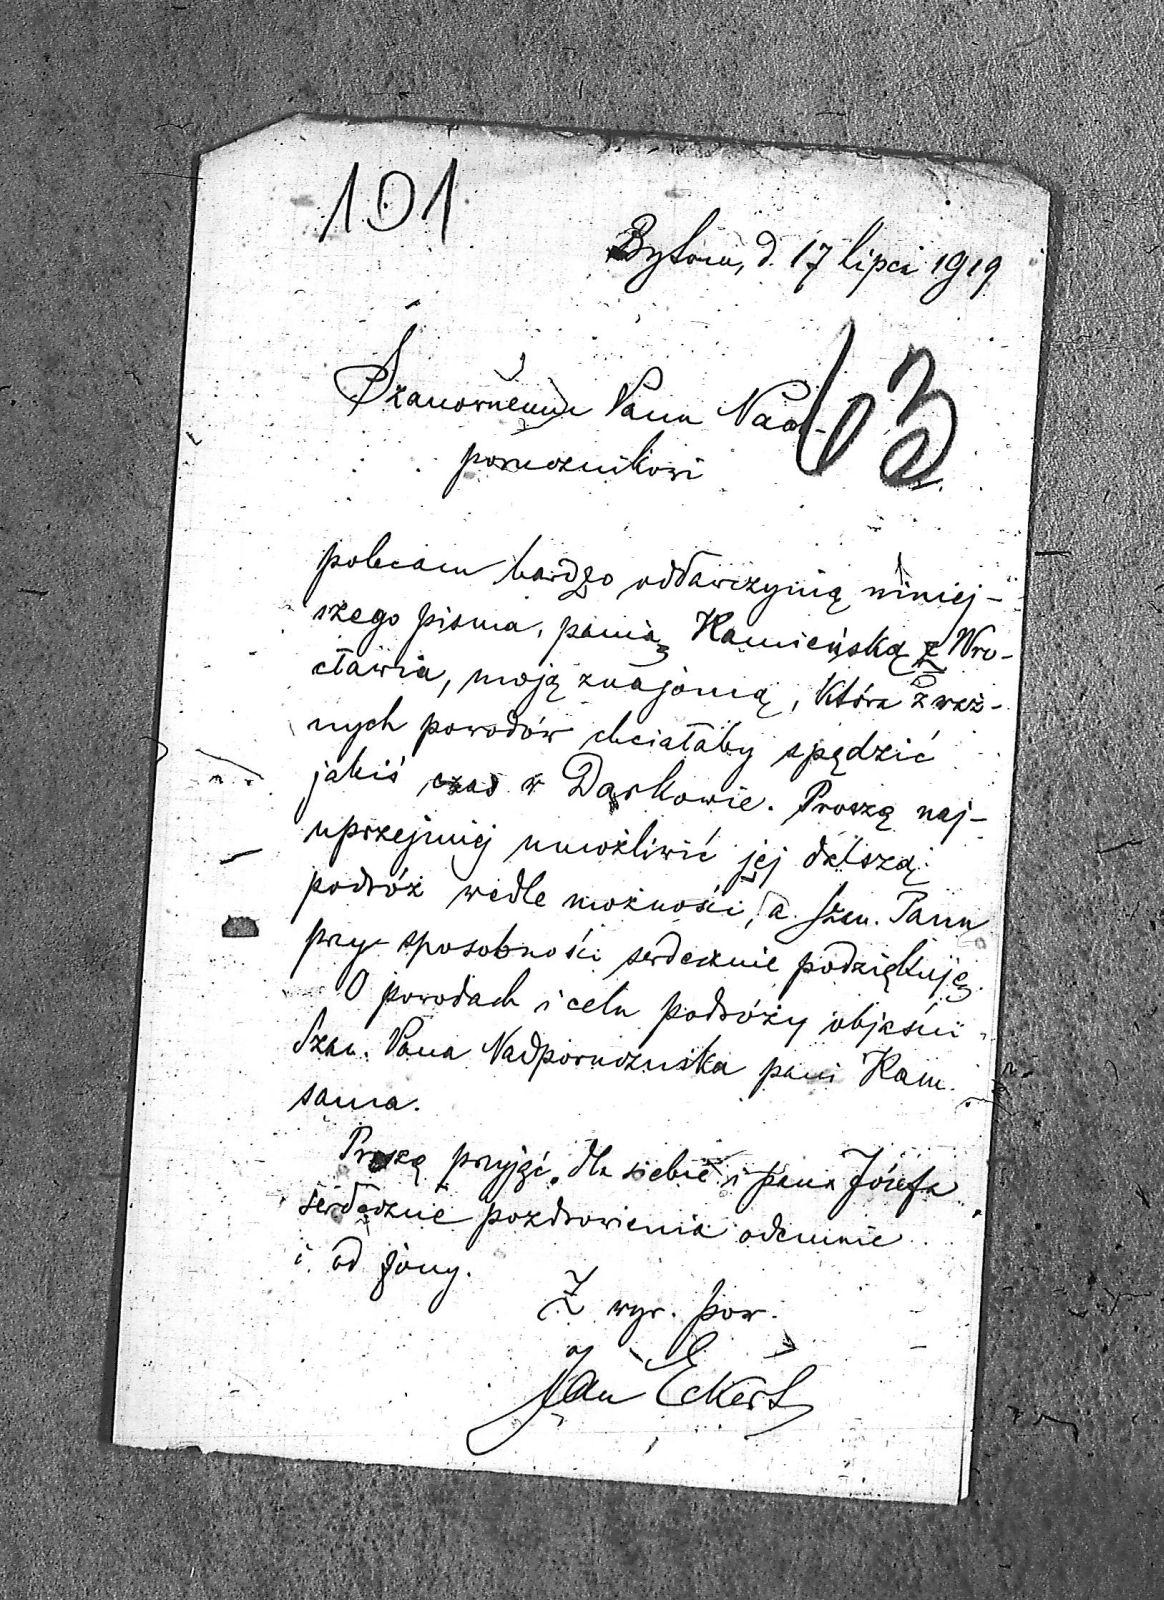 101
Bytom, d. 17 lipca 1919
63
Szanownemu Panu Nad-
porucznikowi
polecam bardzo oddawczynią niniej-
szego pisma, panią Kamieńską z Wro-
cławia, moją znajomą, która z waż-
nych powodów chciałaby spędzić
jakiś czas w Darkowie. Proszą naj-
uprzejmiej umożliwić jej dalszą
podróż wedle możności, a Szan. Panu
przy sposobności serdecznie podziękuję.
O powodach i celu podróży objaśni
Szan. Pana Nadporucznika pani Kam.
sama.
Proszą przyjąć dla siebie i pana Józefa
serdeczne pozdrowienia odemnie
i od żony.
Z wyr. pow.
Jan Eckert